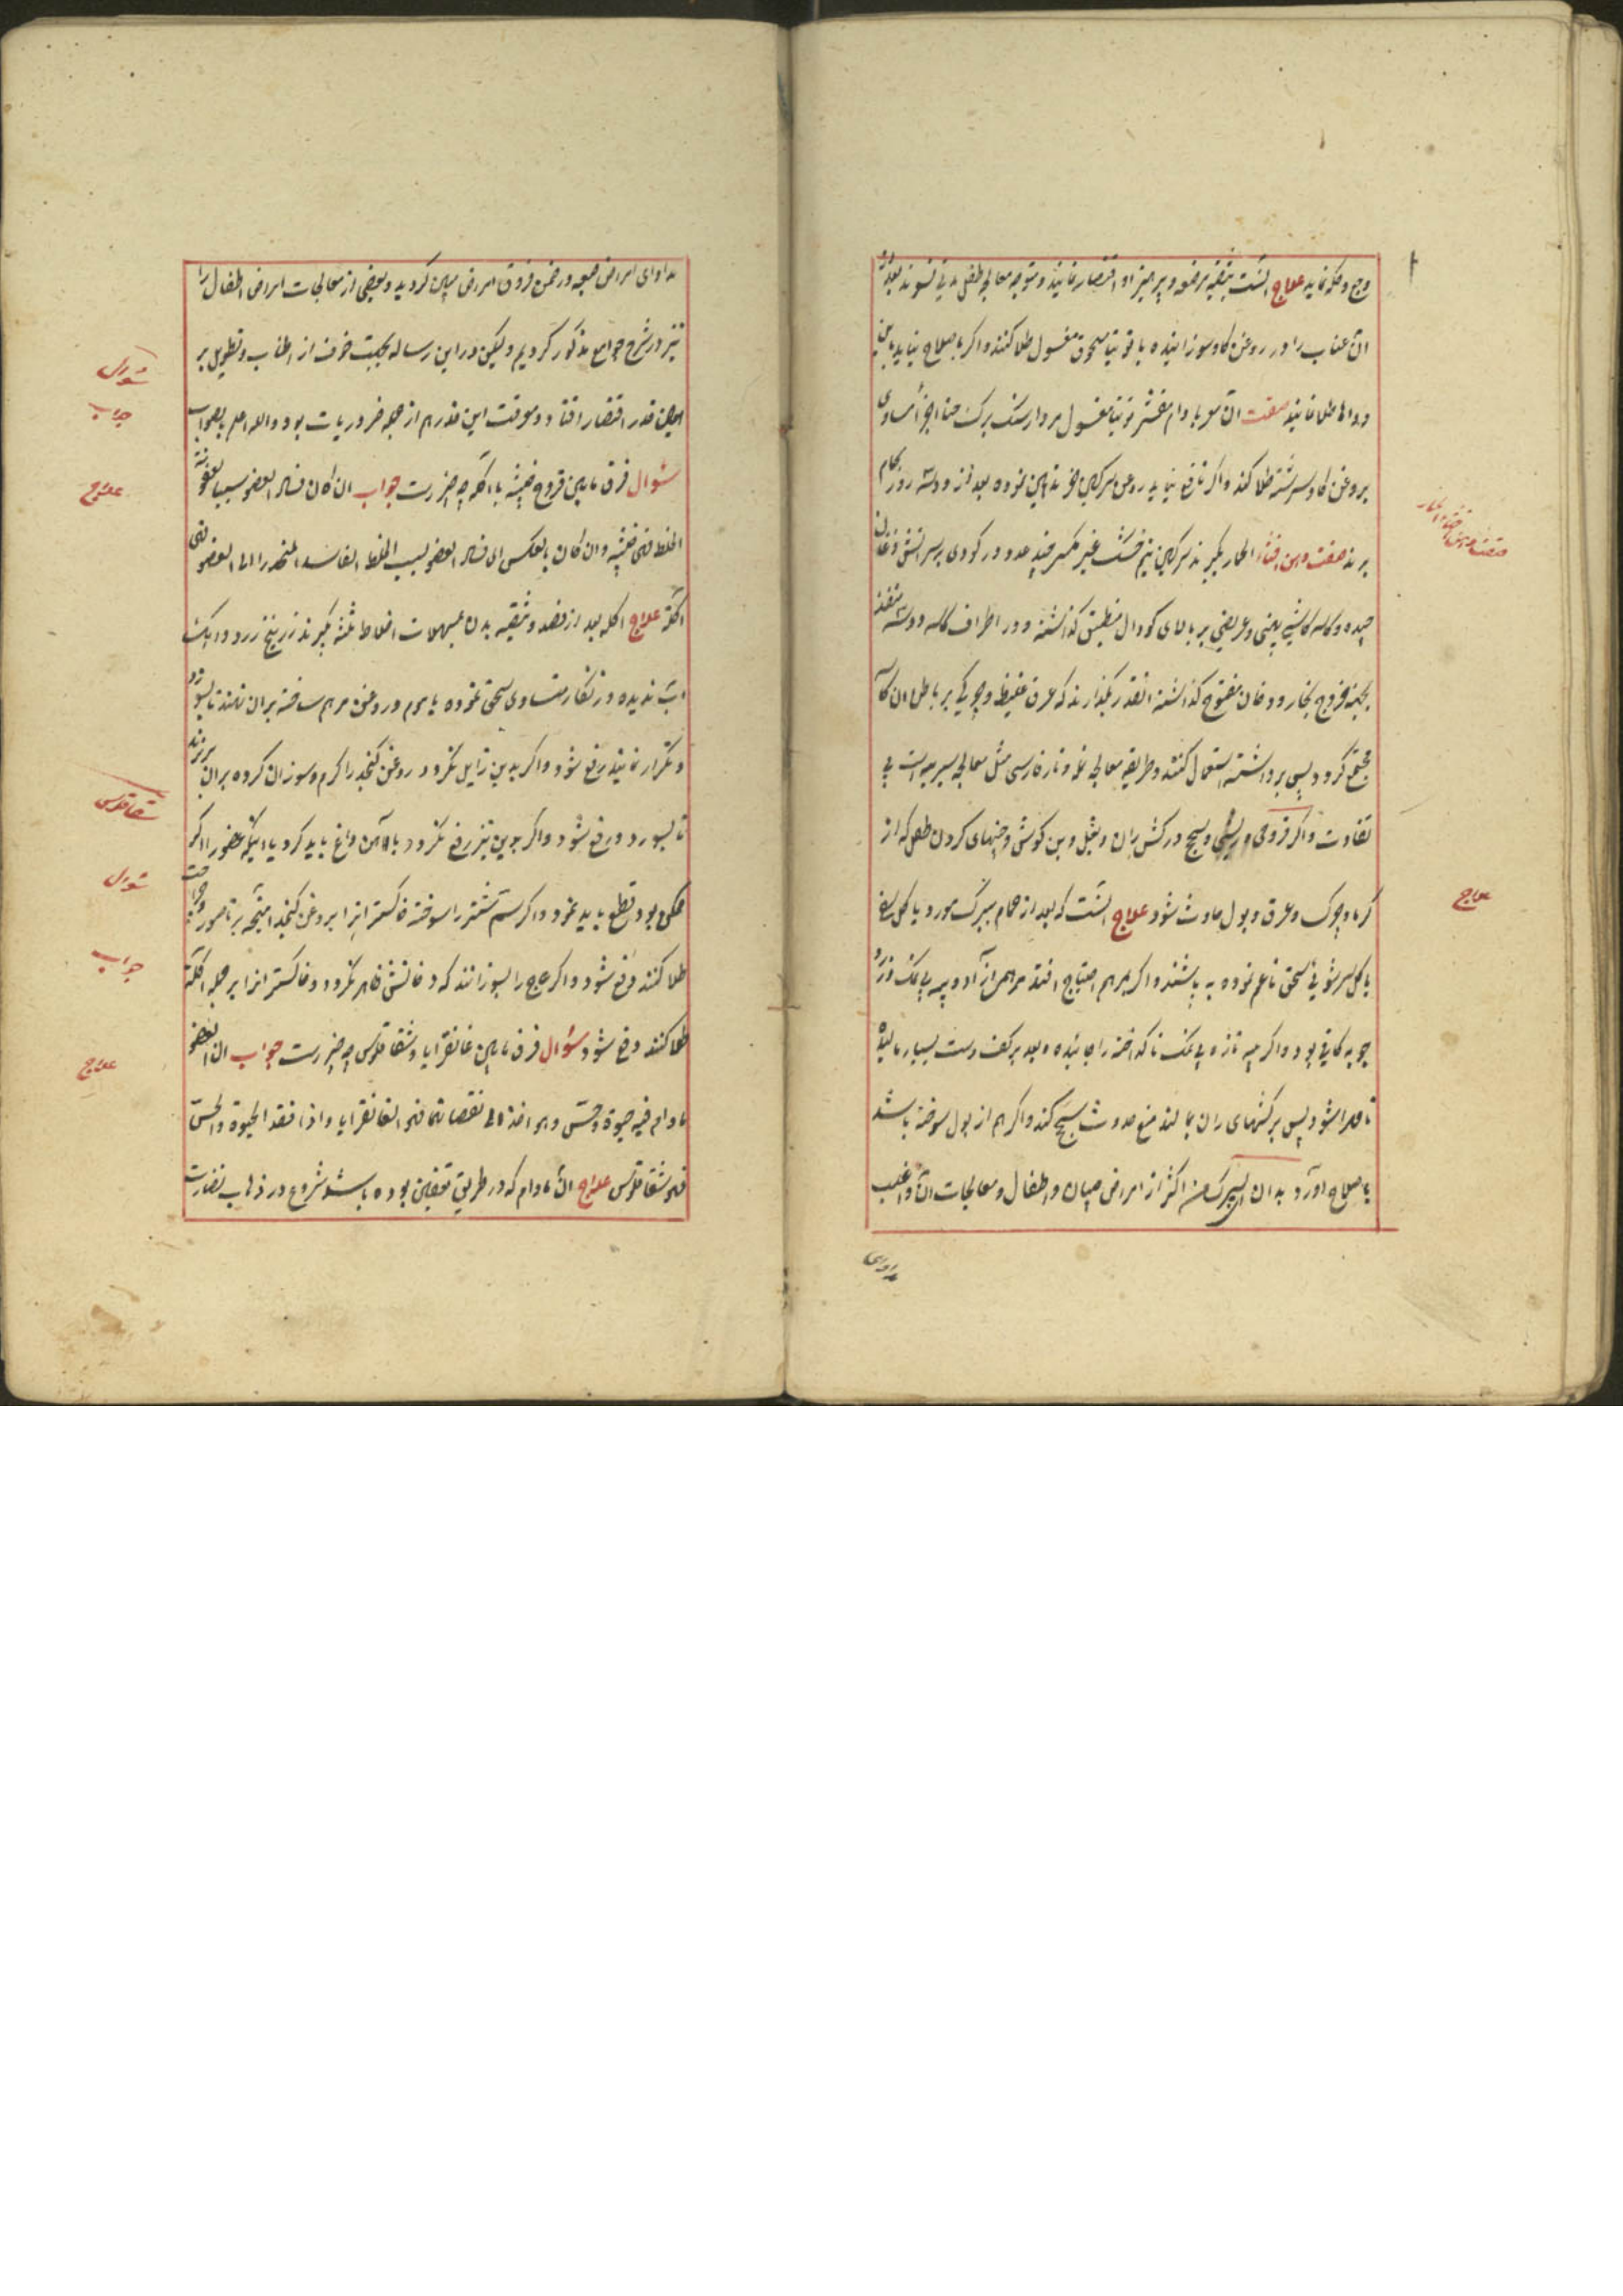 وجع و حکه نماید علاج آنست بتنقیه مرضعه و پرهیز او اقتصار نمایند و متوجه معالجه طفل مدتی نشوند بعد از
آن عناب را در روغن کاو سوزانیده با توتیا مسحوق مغسول طلا کنند و اکر باصلاح نیاید باین
دواها طلا نمایند صفت آن مو بادام مقشر توتیا مغسول مردارسنک برک حنا اجزا مساوی
بروغن کاو سرشته طلا کنند و اکر نافع نیاید روغن سرکین خر تدهین نموده بعد از دو سه روز بحمام
برند صفت دهن اخثاء الحمار بکیرند سرکین خر خشک غیر مکسر چند عدد در کودی بر سر آتش دخانی
چیده و کاسه کاشی پهنی و عریضی بر بالای کودال منطبق کذاشته و در اطراف کاسه دو سه منفذ
بجهة خروج بخار و دخان مفتوح کذاشته انقدر بکذارند که عرق غلیظ و چربی بر باطن ان کاسه
مجتمع کردد پس برداشته استعمال کنند و طریقه معالجه نار فارسی مثل معالجه است بی
تفاوت و اکر قروحی و ریشی و سحج در کش ران و بغل و بن کوش و چینهای کردن طفل که از
کرما و چرک و عرق و بول حادث شود علاج آنست که بعد از حمام ببرک مورد یا کل سرخ
یا کل سرشوی سحق ناعم نموده به پاشند و اکر بمرهم احتیاج افتد مرهم از آرد و پیه بی نمک و زرده
چوبه کافی بود و اکر پیه تازه بی نمک ناکداخته را خائیده و بعد بر کف دست بسیار مالیده
تا همرا شود پس بر کشهای ران بمالند منع حدوث سحج کند و اکر هم از بول سوخته باشد
باصلاح اورد بدان که اکثر از امراض صبیان و اطفال و معالجات آن و اغلب
مداوای
صفت دهن اخثاء الحمار
علاج
مداوای امراض صعبه در ضمن فروق امراض مبین کردید و بعضی از معالجات امراض اطفال را
نیز در شرح جوامع مذکور کردیم و لیکن در این رساله بجهت خوف از اطناب و تطویل بر
همین قدر اقتصار افتاد و معرفت این قدر هم از جمله ضروریات بود والله اعلم بالصواب
سئوال فرق مابین قروح خبیثه با اکله چه چیز است جواب ان کان فساد العضو بسبب عفونة
الخلط فهی خبیثه و ان کان بالعکس ای فساد العضو بسبب الخلط الفاسد المنحدر الی العضو فهی
اکله علاج اکله بعد از فصد و تنقیه بدن بمسهلات اخلاط ثلثه بکیرند زرنیخ زرد و اهک
آب ندیده و زنکار متساوی سحق نموده با موم و روغن مرهم ساخته بران نهند تا بسوزد
و تکرار نمایند رفع شود و اکر بدین زایل نکردد روغن کنجد را کرم و سوزان کرده بران بریزند
تا بسوزد و رفع شود و اکر بدین نیز رفع نکردد بالآهن داغ باید کرد یا اینکه عضو را اکر
ممکن بود قطع باید نمود و اکر سم شتر را سوخته خاکستر انرا بروغن کنجد آمیخته بر ناصور
طلا کنند رفع شود و اکر عاج را بسوزانند که دخانش ظاهر نکردد و خاکستر انرا بر جمله اکله
طلا کنند رفع شود سئوال فرق مابین غانقرایا و شقاقلوس چه چیز است جواب ان العضو
مادام فیه حیوة و حس و هو اخذ الی نقصانهما فهو الغانقرایا و اذا فقد الحیوة و الحس
فهو شقاقلوس علاج آن مادام که در طریق تعفن بوده باشد شروع در ذهاب نضارت
سئوال
جواب
علاج
شقاقلوس
سئوال
جواب
علاج